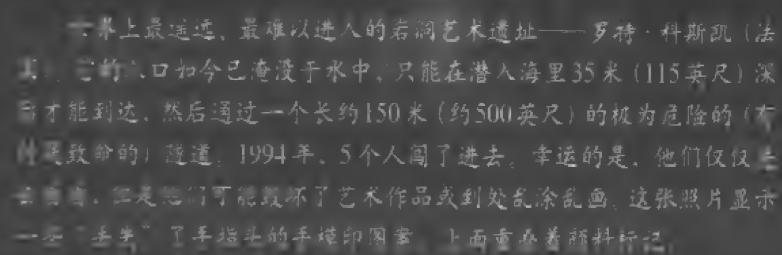 世界上最遥远、最难以进入的岩洞艺术遗址——罗特·科斯凯(法
的入口如今已淹没于水中,只能在潜入海里35米(115英尺)深
才能到达,然后通过一个长约150米(约500英尺)的极为危险的(有
时是致命的)隧道。1994年,5个人闯了进去。幸运的是,他们仅仅
但是他们可能毁坏了艺术作品或到处乱涂乱画。这张照片显示
了手指头的手模印图案,上面重叠着颜料标记。